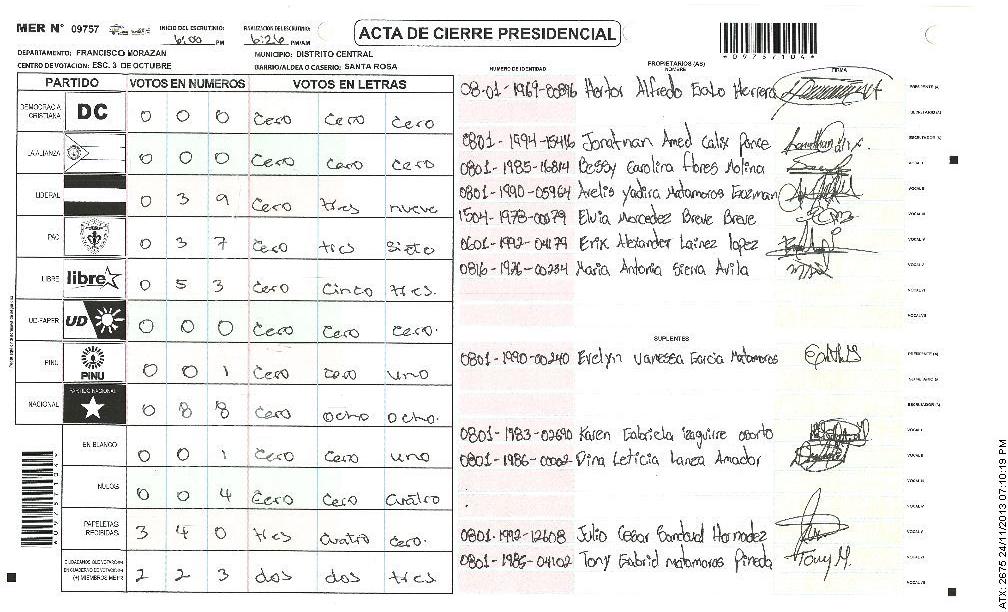 MER N° 09757 INICIO DEL ESCRUTINIO: 6:00 PM FINALIZACION DEL ESCRUTINIO: 6:26 PM/AM
ACTA DE CIERRE PRESIDENCIAL
*09757104*
DEPARTAMENTO: FRANCISCO MORAZAN MUNICIPIO: DISTRITO CENTRAL
CENTRO DE VOTACION: ESC. 3 DE OCTUBRE BARRIO/ALDEA O CASERIO: SANTA ROSA
PARTIDO VOTOS EN NUMEROS VOTOS EN LETRAS
DEMOCRACIA CRISTIANA DC 0 0 0 Cero Cero Cero
LA ALIANZA 0 0 0 Cero Cero Cero
LIBERAL 0 3 9 Cero tres nueve
PAC 0 3 7 Cero tres Siete
LIBRE libre 0 5 3 Cero Cinco tres.
UD-FAPER UD 0 0 0 Cero Cero Cero.
PINU PINU 0 0 1 Cero Cero uno
NACIONAL PARTIDO NACIONAL 0 8 8 Cero ocho ocho.
EN BLANCO 0 0 1 Cero Cero uno
NULOS 0 0 4 Cero Cero Cuatro
PAPELETAS RECIBIDAS 3 4 0 tres Cuatro Cero.
CIUDADANOS QUE VOTARON EN CUADERNO DE VOTACION (+) MIEMBROS MER'S 2 2 3 dos dos tres
NUMERO DE IDENTIDAD PROPIETARIOS (AS) NOMBRE FIRMA
Alfredo Herrera PRESIDENTE (A)
SECRETARIO (A)
0801-1994-15416 Jonathan Amed Calix Ponce ESCRUTADOR (A)
Bessy Carolina flores Molina VOCAL I
0801-1990-05964 Arelis Yadira Matamoros VOCAL II
1504-1978-00079 Elvia Mercedez Breve Breve VOCAL III
0601-1992-04179 Erix Alexander Lainez lopez
Maria Antonia Sierra Avila
VOCAL VI
VOCAL VII
SUPLENTES
0801-1990-00240 Evelyn Vanessa Garcia Matamoros PRESIDENTE (A)
SECRETARIO (A)
ESCRUTADOR (A)
0801-1983-02690 Karen Gabriela Izaguirre VOCAL I
Dina Leticia Lanza Amador VOCAL II
0801-1992-12608 Julio Cesar Hernadez
0801-1985-04102 Tony Gabriel Matamoros Pineda Tony M.
VOCAL VII
ATX: 2675 24/11/2013 07:10:19 PM